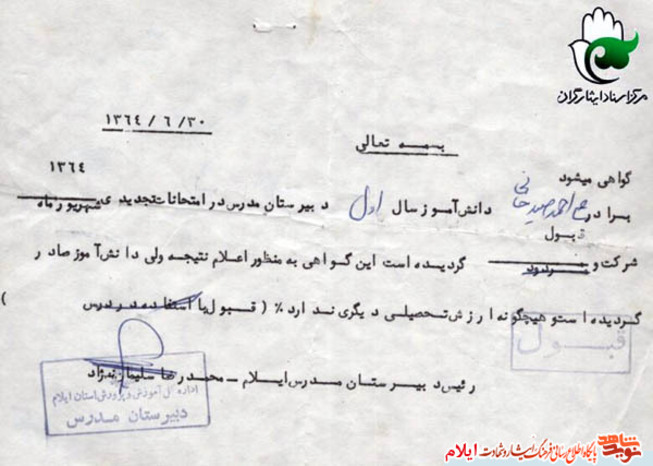 مرکز اسناد ایثارگران
۱۳۶۴ / ۶ / ۳۰
بسمه تعالی
گواهی میشود
۱۳۶۴
برادر ع احمد صید خانی دانش آموز سال اول دبیرستان مدرس در امتحانات تجدیدی شهریور ماه
قبول
شرکت و مردود گردیده است این گواهی به منظور اعلام نتیجه ولی دانش آموز صادر
گردیده است و هیچگونه ارزش تحصیلی دیگری ندارد٪ ( قبول با استفاده در درس )
قبول
رئیس دبیرستان مدرس ایلام - محمدرضا سلیمان نژاد
اداره کل آموزش و پرورش استان ایلام
دبیرستان مدرس
نوید شاهد
پایگاه اطلاع رسانی فرهنگ ایثار و شهادت ایلام